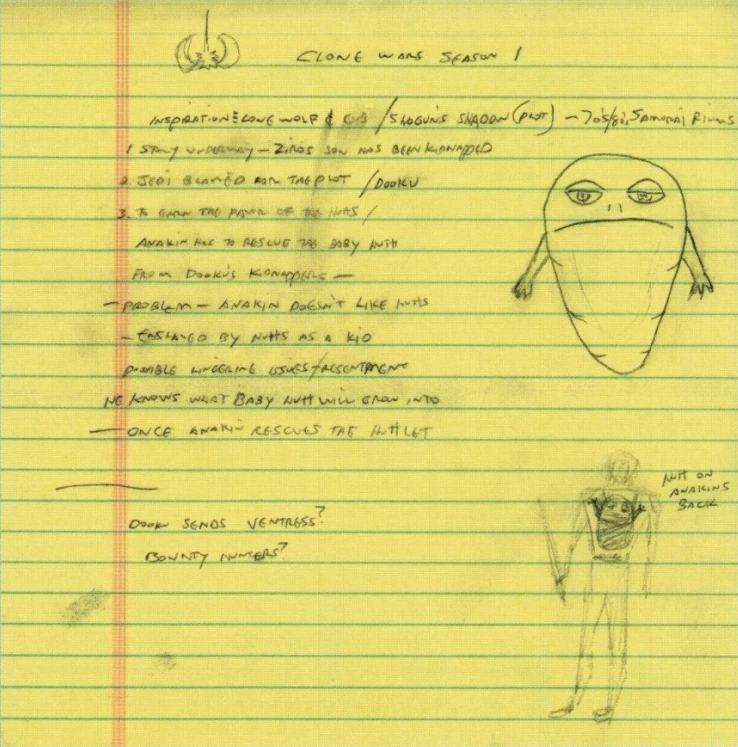 CLONE WARS SEASON 1
INSPIRATION: LONE WOLF & CUB / SHOGUN'S SHADOW (PLOT) - 70'S/80'S, SAMURAI FILMS
1 STORY UNDERWAY - ZIRO'S SON HAS BEEN KIDNAPPED
2. JEDI BLAMED FOR THE PLOT / DOOKU
3. TO EARN THE FAVOR OF THE HUTTS /
ANAKIN HAS TO RESCUE THE BABY HUTT
FROM DOOKU'S KIDNAPPERS —
- PROBLEM - ANAKIN DOESN'T LIKE HUTTS
- ENSLAVED BY HUTTS AS A KID
POSSIBLE LINGERING ISSUES/RESENTMENT
HE KNOWS WHAT BABY HUTT WILL GROW INTO
— ONCE ANAKIN RESCUES THE HUTTLET
HUTT ON
ANAKINS
BACK
DOOKU SENDS VENTRESS?
BOUNTY HUNTERS?